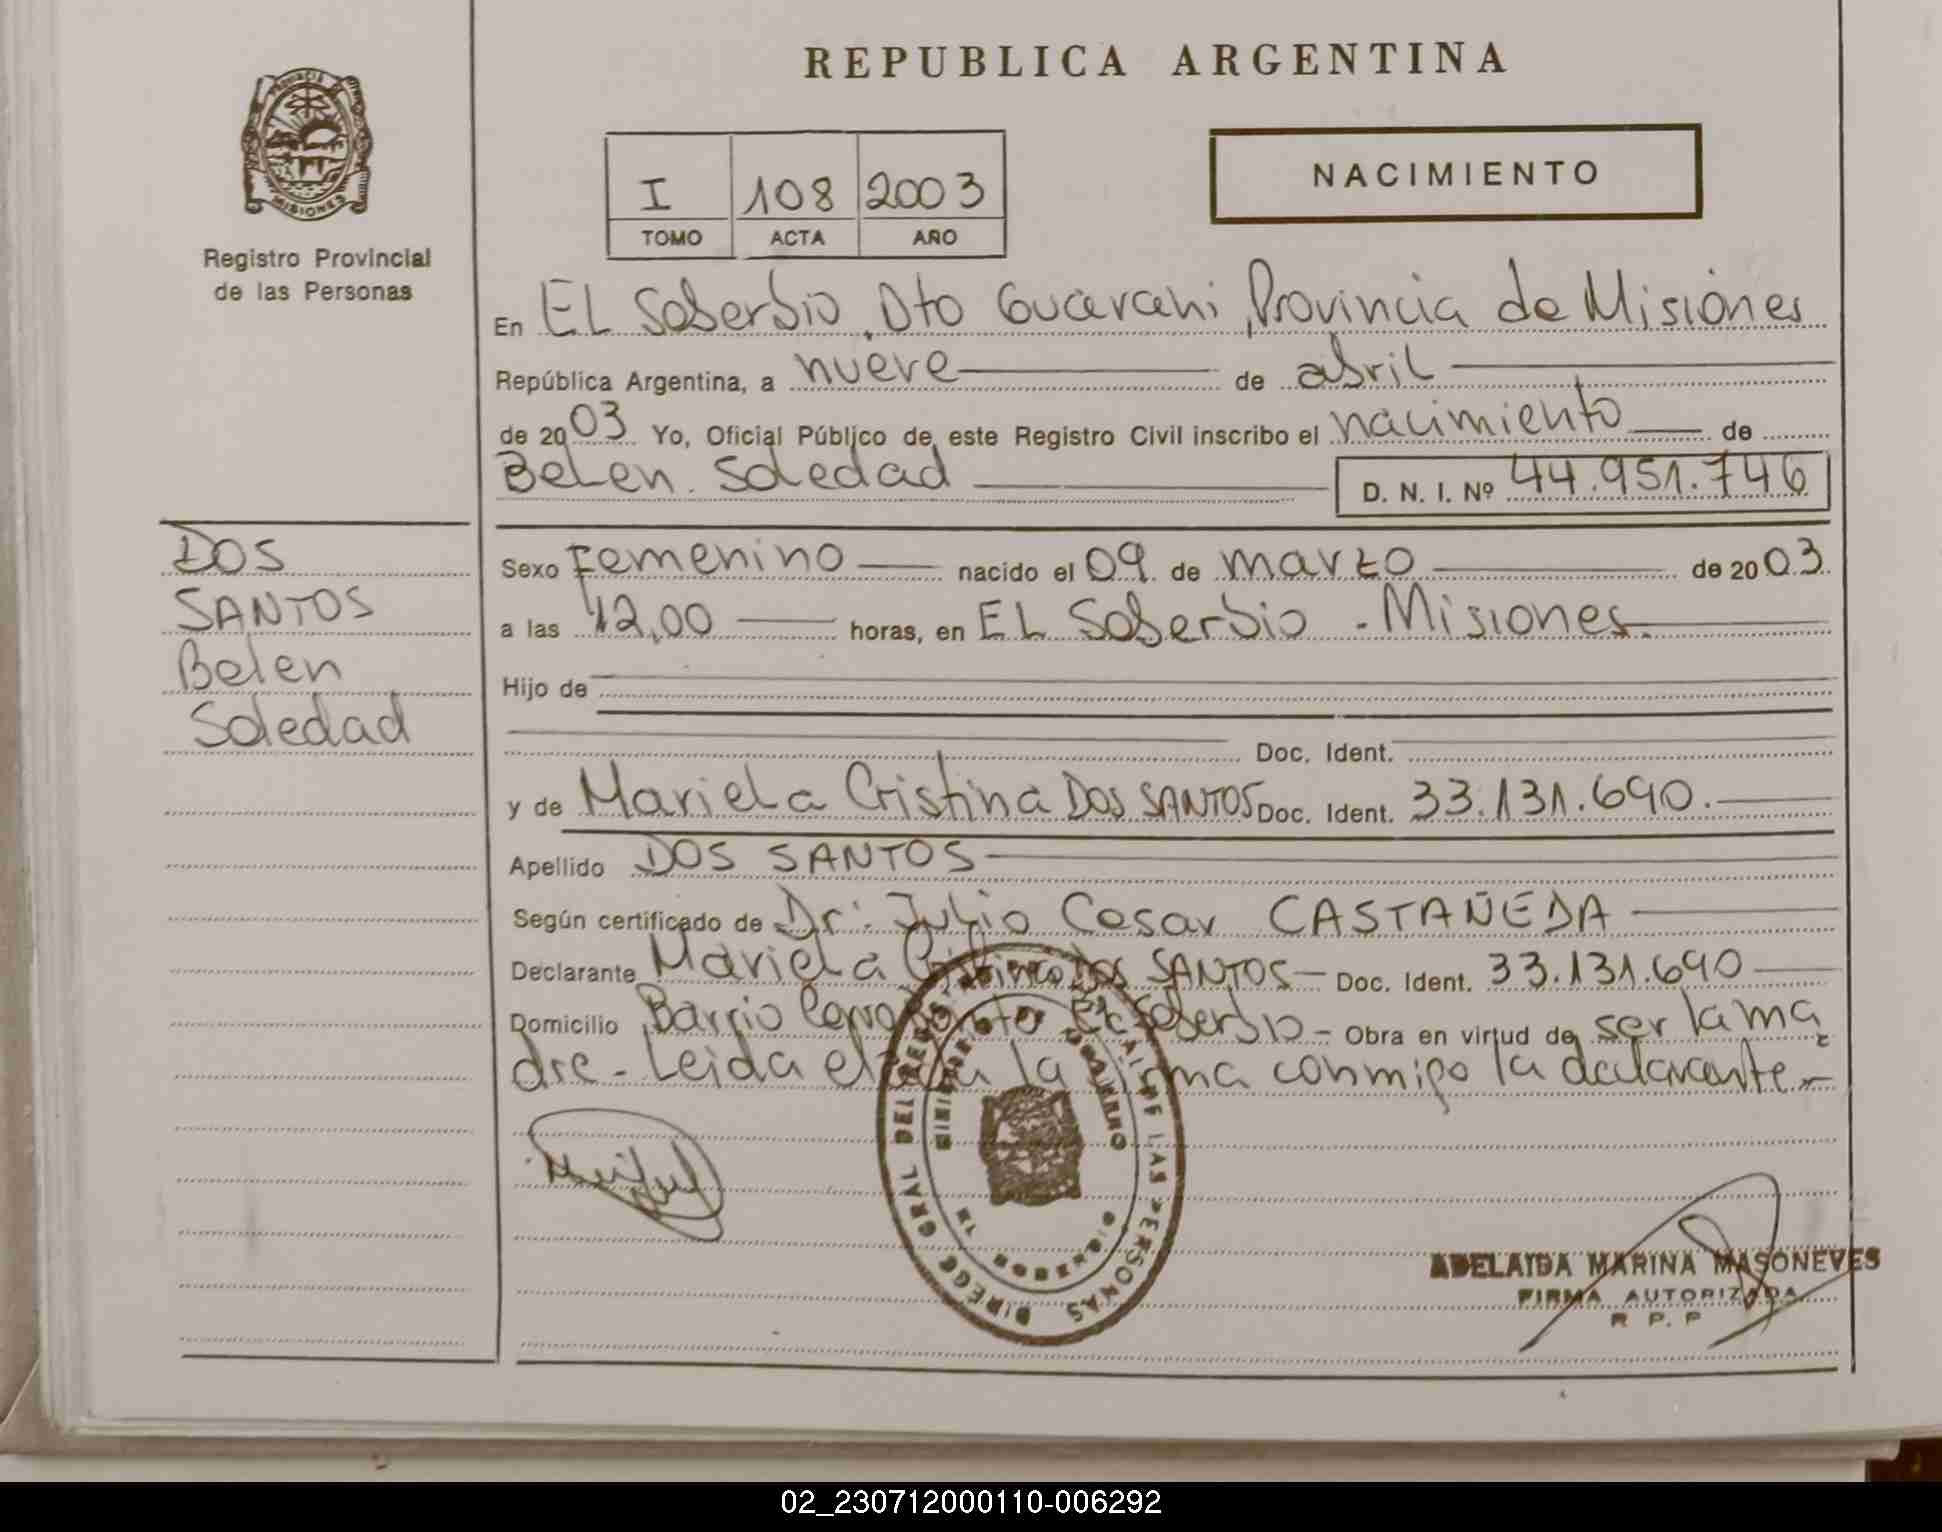 REPUBLICA ARGENTINA
PROVINCIA
MISIONES
Registro Provincial
de las Personas
I 108 2003
TOMO ACTA AÑO
NACIMIENTO
En EL Soberbio, Dto Guarani, Provincia de Misiones
República Argentina, a nueve de abril
de 2003 Yo, Oficial Público de este Registro Civil inscribo el nacimiento de
Belen Soledad D. N. I. Nº 44.951.746
DOS
SANTOS
Belen
Soledad
Sexo Femenino nacido el 09 de marzo de 2003
a las 12,00 horas, en EL Soberbio - Misiones.
Hijo de
Doc. Ident.
y de Mariela Cristina DOS SANTOS Doc. Ident. 33.131.690.
Apellido DOS SANTOS
Según certificado de Dr: Julio Cesar CASTAÑEDA
Declarante Mariela Cristina DOS SANTOS - Doc. Ident. 33.131.690
Domicilio Barrio El Soberbio - Obra en virtud de ser la ma
dre - Leida el acta la firma conmigo la declarante -
DIREGE GRAL DEL REG. DE LAS PERSONAS
MINISTERIO DE GOBIERNO
ADELAIDA MARINA MASONEVES
FIRMA AUTORIZADA
R P. P
02_230712000110-006292